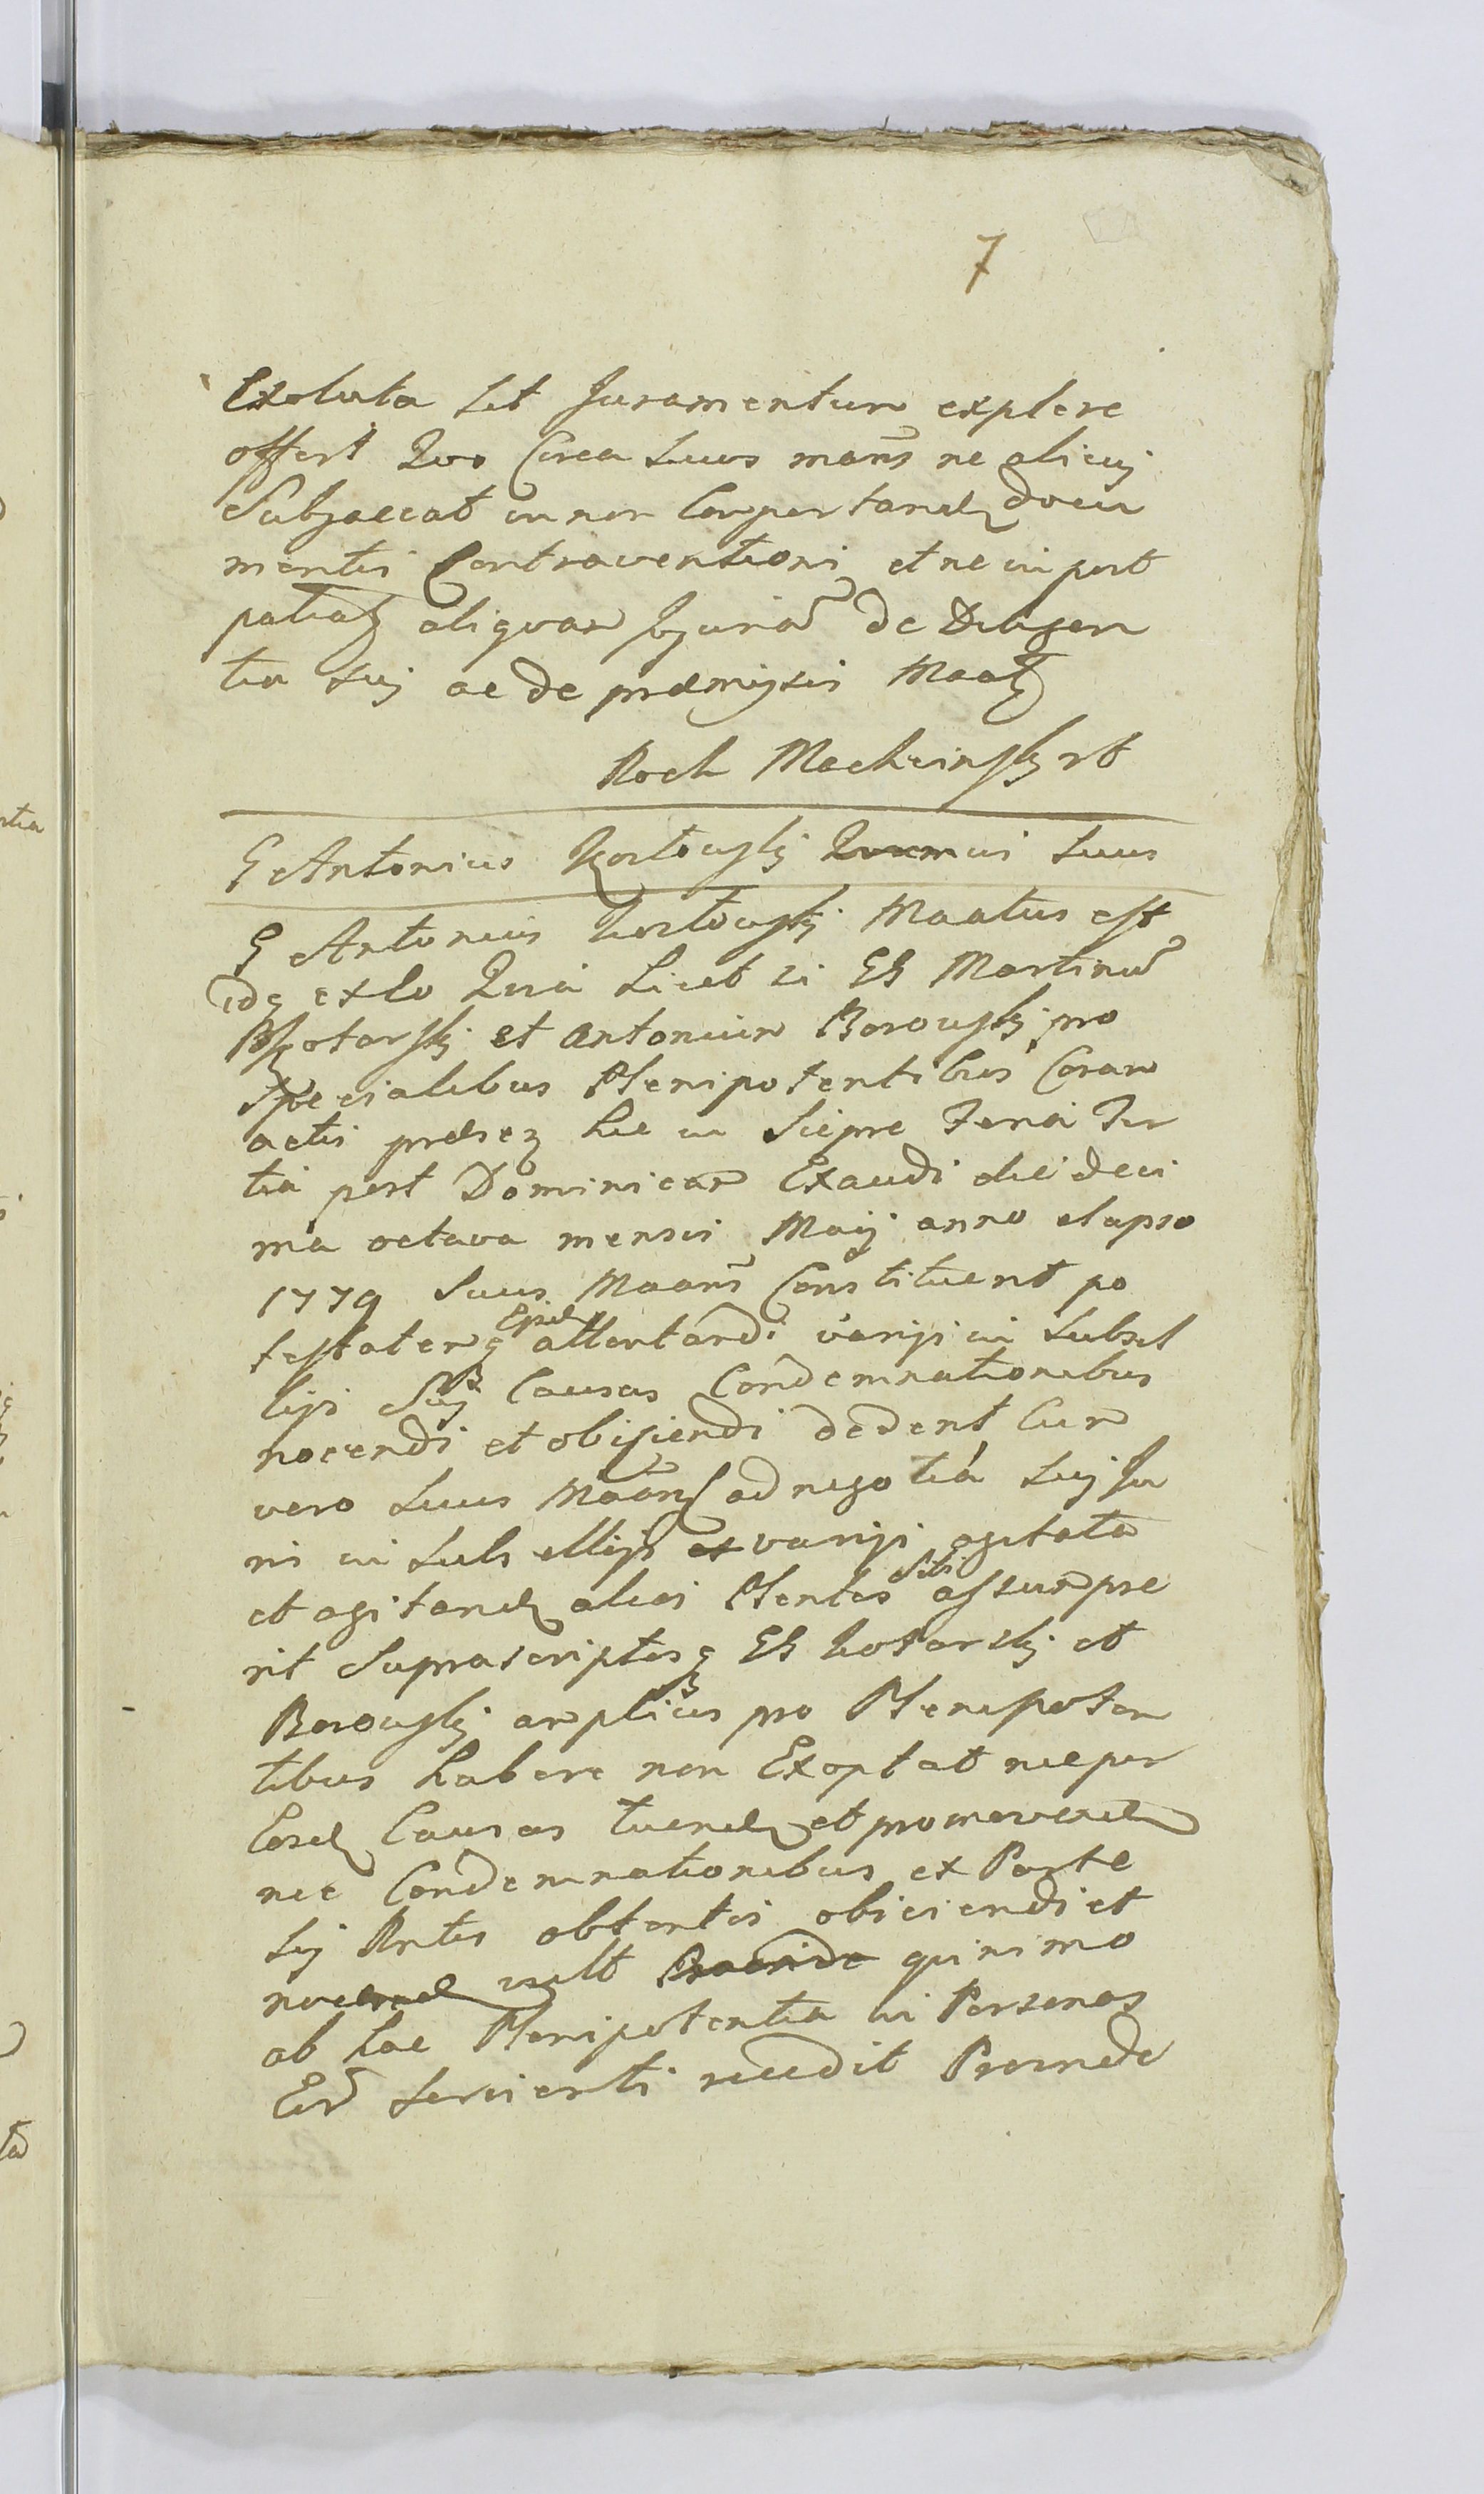 7
Exoluta sit Juramentum explere
offert Quo Circa suus mans ne alicuj
Subjaceat in non Comportand docu
mentis Contraventioni et ne in post
patiat aliquam Injuria de Diligen
tia suj ac de præmissis Maat
Roch Mechwinsky rt
G Antonius Kozłowskj suus
G Antonius Kozłowskj Maatus est
idq exlo Quia Licet si GG Martinum
et Antonium Borowskj pro
Specialibus Plenipotentibus Coram
actis præsez hic in Sieprc Feria Ter
tia post Dominicam Exaudi die deci
ma octava mensis Maij anno elapso
1779 Suus Maans Constituerit po
testatemq Ejsd attentandi varijs in Subsel
lijs Suj Causas Condemnationibus
nocendi et obijciendi dederit Cum
vero suus Maans ad negotia suj Ju
ris in Subsellijs varijs agitata
et agitand alios Plentes Sibi assumpse
rit Suprascriptosq GG et
Borowskj amplius pro Plenipoten
tibus habere non Exoptat nec per
Eosd Causas tuend et promovend
nec Condemnationibus ex Parte
suj Prtis obtentis obiciendi et
vult Proinde quinimo
ab hac Plenipotentia in Personas
Eor servienti recedit Proinde